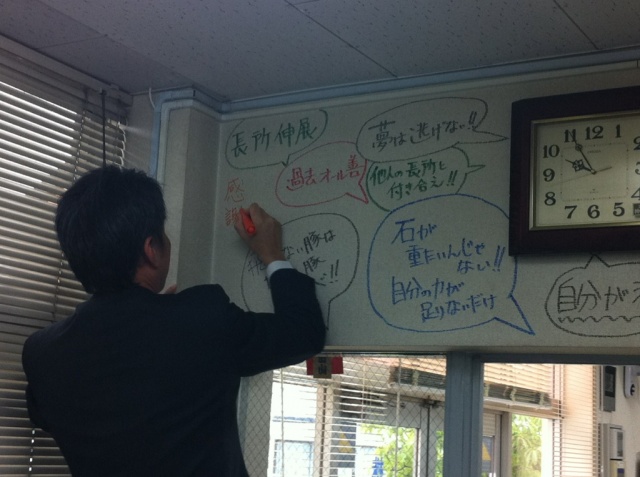 長所伸展
夢は逃げない!!
過去オール善
他人の長所と
付き合え!!
感謝
ない豚は
豚
!!
石が
重たいんじゃ
ない!!
自分の力が
足りないだけ
自分が
10
11
12
1
9
8
7
6
5